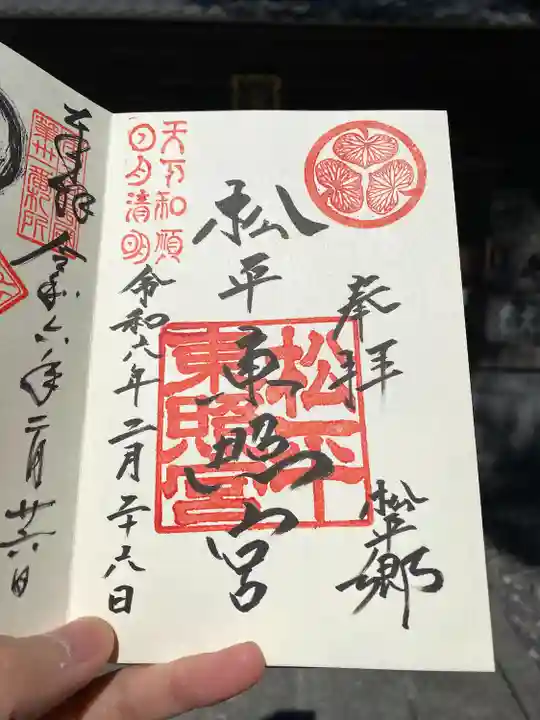 奉拝
松平郷
松平東照宮
松平
東照宮
天下和順
日月清明
令和六年二月二十六日
奉拝 令和六年二月廿六日